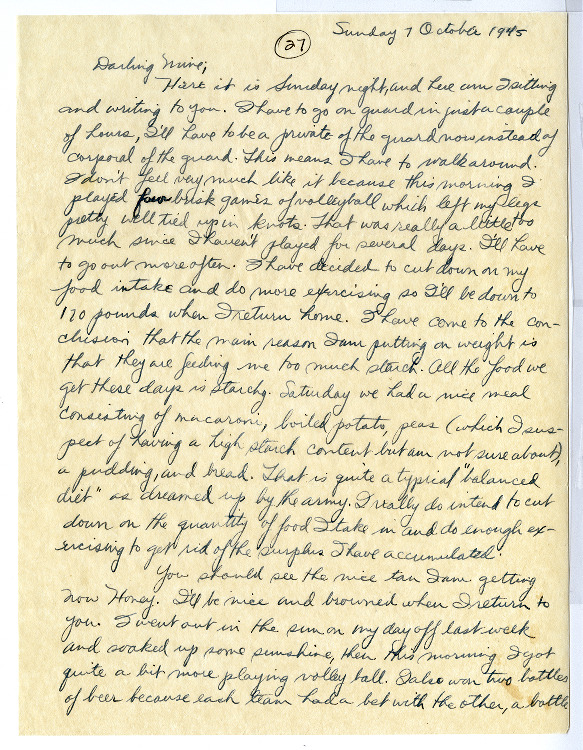 Sunday 7 October 1945
27
Darling Mine;
Here it is Sunday night, and here am I sitting
and writing to you. I have to go on guard in just a couple
of hours, I'll have to be a private of the guard now instead of
corporal of the guard. This means I have to walk around.
I don't feel very much like it because this morning I
played four brisk games of volleyball which left my legs
pretty well tied up in knots. That was really a little too
much since I haven't played for several days. I'll have
to go out more often. I have decided to cut down on my
food intake and do more exercising so I'll be down to
170 pounds when I return home. I have come to the con-
clusion that the main reason I am putting on weight is
that they are feeding me too much starch. All the food we
get these days is starchy. Saturday we had a nice meal
consisting of macaroni, boiled potato, peas (which I sus-
pect of having a high starch content but am not sure about),
a pudding, and bread. That is quite a typical "balanced
diet" as dreamed up by the army. I really do intend to cut
down on the quantity of food I take in and do enough ex-
ercising to get rid of the surplus I have accumulated.
You should see the nice tan I am getting
now Honey. I'll be nice and browned when I return to
you. I went out in the sun on my day off last week
and soaked up some sunshine, then this morning I got
quite a bit more playing volley ball. I also won two bottles
of beer because each team had a bet with the other, a bottle